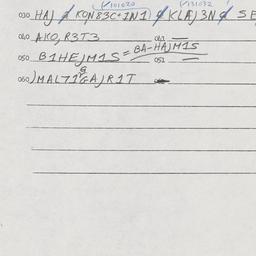 ✓101020 ✓131032
030 HAJ ȼ KON83C+1N1) ȼ KLAJ3N ȼ SE
040 AKO,R3T3 041 —
050 B1HEJM1S = BA-HAJM1S 051 —
060 JMAL71GAJR1T